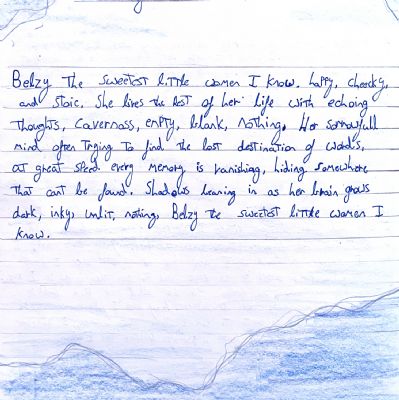 Belzy The sweetest little women I know. happy, cheeky,
and stoic. She lives the last of her life with echoing
thoughts, cavernass, empty, blank, nothing. Her sorrowfull
mind often trying to find the lost destination of words,
at great speed every memory is vanishing, hiding somewhere
that cant be found. Shadows leaning in as her brain grows
dark, inky, unlit, nothing, Belzy the sweetest little women I
know.